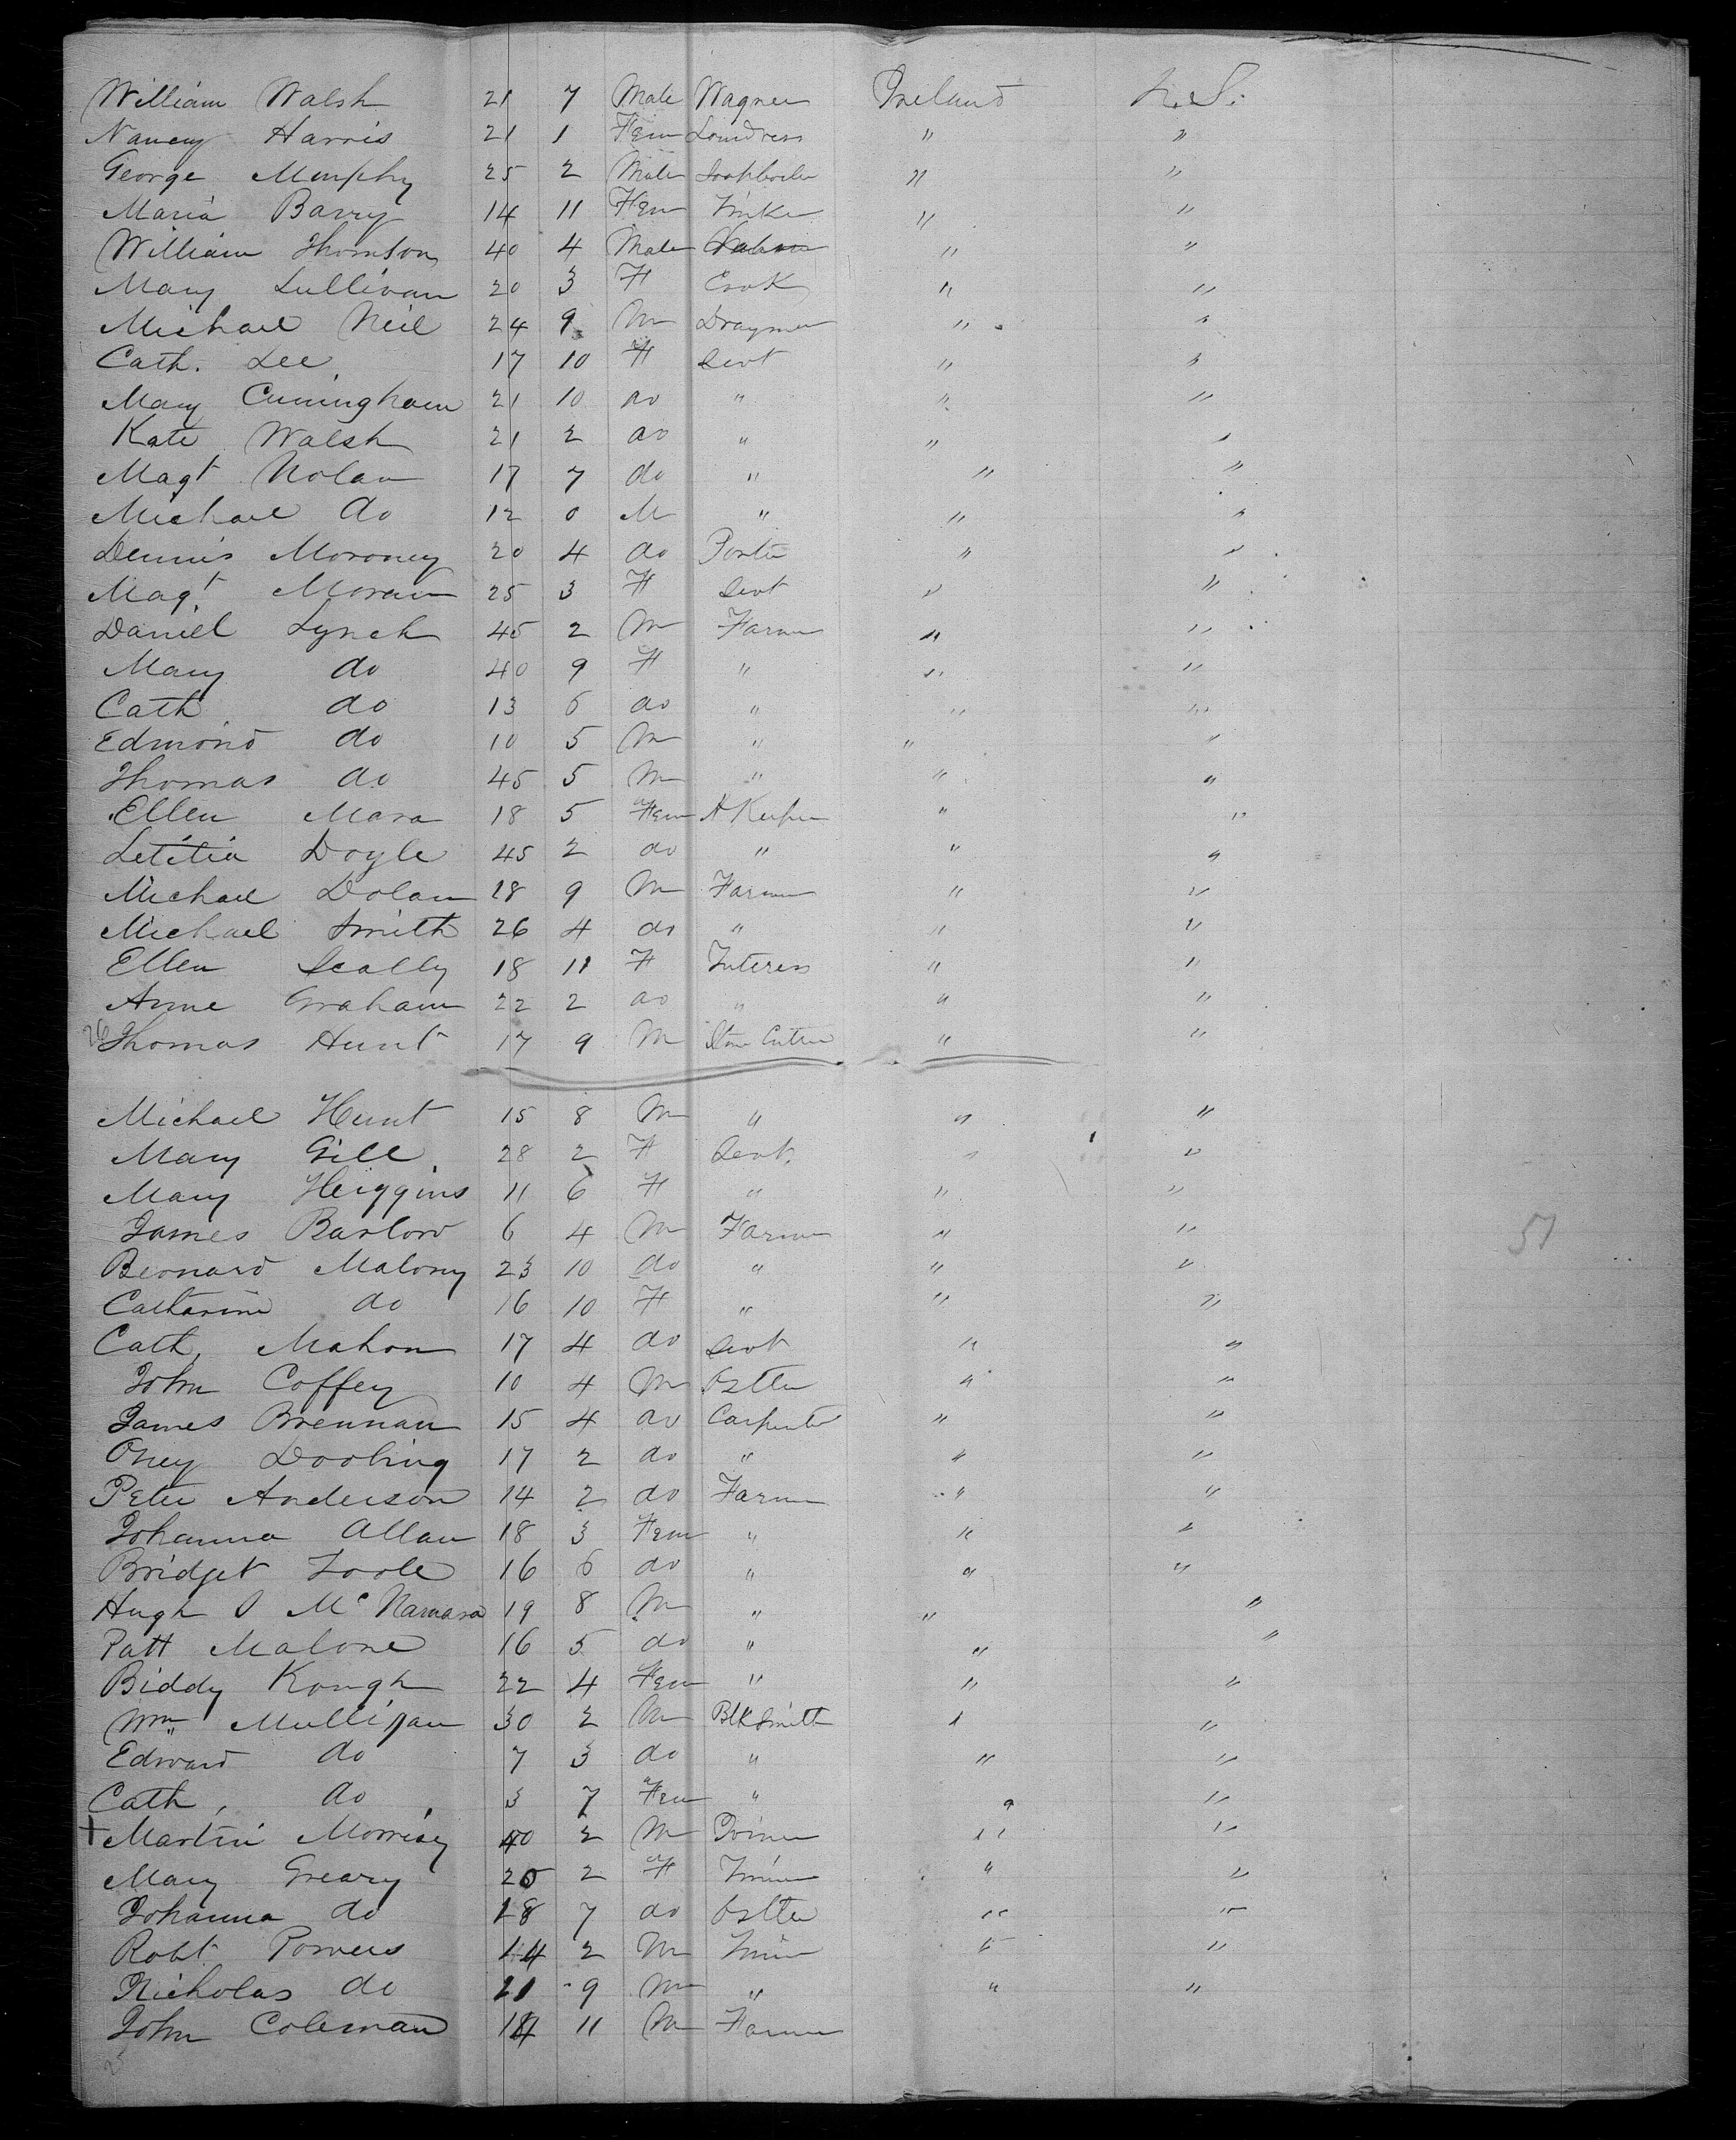 William Walsh 21 7 Male Wagner Ireland U.S.
Nancy Harris 21 1 Fem Laundress " "
George Murphy 25 2 Male Soapboiler " "
Maria Barry 14 11 Fem " "
William Thomson 40 4 Male " "
Mary Sullivan 20 3 F Cook " "
Michael Neil 24 9 M Drayman " "
Cath. Lee 17 10 F Sevt " "
Mary Cuningham 21 10 do " " "
Kate Walsh 21 2 do " " "
Magt Nolan 17 7 do " " "
Michael do 12 0 M " " "
Dennis Moroney 20 4 do Porter " "
Magt Moran 25 3 F Sevt " "
Daniel Lynch 45 2 M Farmer " "
Mary do 40 9 F " " "
Cath do 13 6 do " " "
Edmond do 10 5 M " " "
Thomas do 45 5 M " " "
Ellen Mara 18 5 Fem H Keeper " "
Letitia Doyle 45 2 do " " "
Michael Dolan 28 9 M Farmer " "
Michael Smith 26 4 do " " "
Ellen Scally 18 11 F " "
Anne Graham 22 2 do " " "
26 Thomas Hunt 17 9 M Stone Cutter " "
Michael Hunt 15 8 M " " "
Mary Gill 28 2 F Sevt. " "
Mary Heiggins 11 6 F " " "
James Barlow 6 4 M Farmer " "
51
Bernard Malony 23 10 do " " "
Catharine do 16 10 F " " "
Cath, Mahon 17 4 do Sevt " "
John Coffey 10 4 M Ostler " "
James Brennan 15 4 do Carpenter " "
Oney Dooling 17 2 do " " "
Peter Anderson 14 2 do Farmer " "
Johanna Allan 18 3 Fem " " "
Bridget Toole 16 6 do " " "
Hugh O McNamara 19 8 M " " "
Patt Malone 16 5 do " " "
Biddy Kough 22 4 Fem " " "
Wm Mulligan 30 2 M BlkSmith " "
Edward do 7 3 do " " "
Cath, do 3 7 Fem " " "
+ Martin Morrisey 40 2 M Joiner " "
Mary Greary 20 2 F " "
Johanna do 18 7 do Ostler " "
Robt Powers 14 2 M " "
Nicholas do 21 9 M " " "
John Coleman 14 11 M Farmer